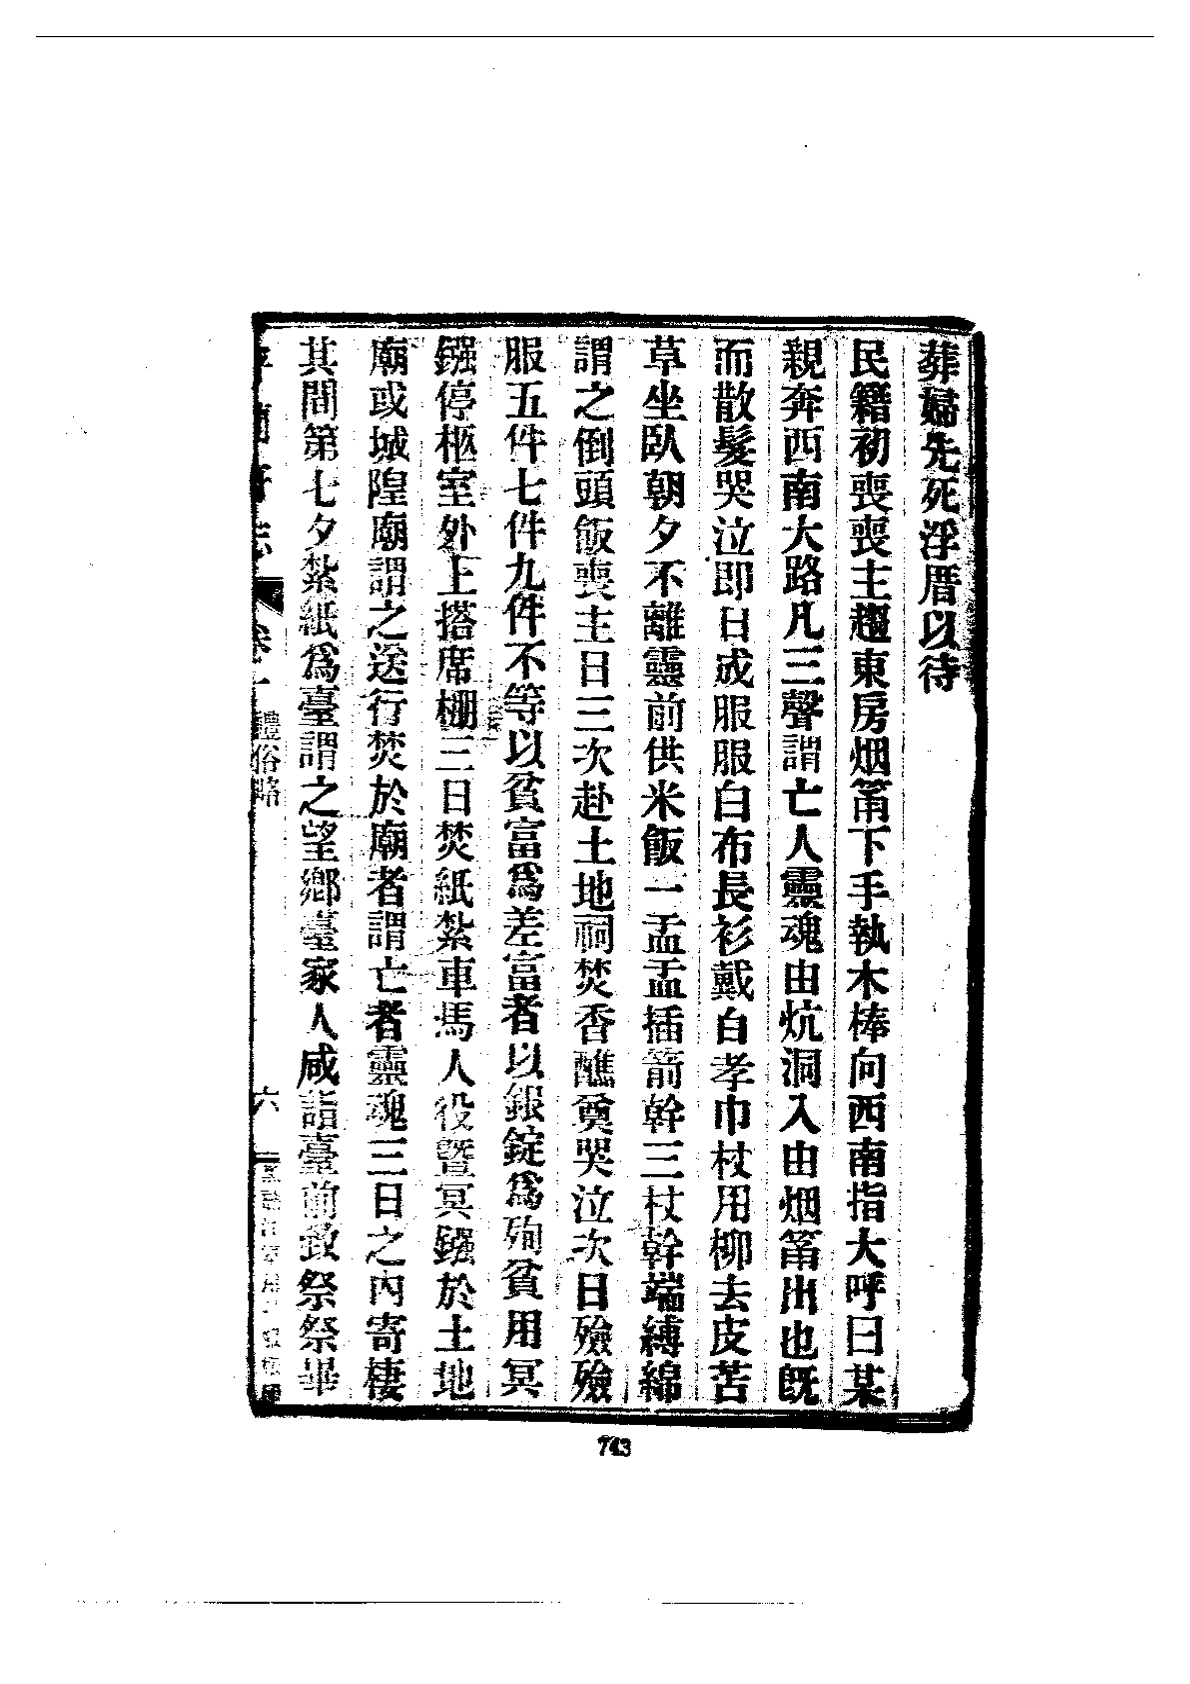 葬婦先死浮厝以待
民籍初喪喪主趨東房烟筩下手執木棒向西南指大呼曰某
親奔西南大路凡三聲謂亡人靈魂由炕洞入由烟筩出也旣
而散髮哭泣即日成服服白布長衫戴白孝巾杖用柳去皮苫
草坐臥朝夕不離靈前供米飯一盂盂插箭幹三杖幹端縛綿
謂之倒頭飯喪主日三次赴土地祠焚香醮奠哭泣次日殮殮
服五件七件九件不等以貧富爲差富者以銀錠爲殉貧用冥
鏹停柩室外上搭席棚三日焚紙紮車馬人役曁冥鏹於土地
廟或城隍廟謂之送行焚於廟者謂亡者靈魂三日之內寄棲
其間第七夕紮紙爲臺謂之望鄉臺家人咸詣臺前致祭祭畢
志 卷一 禮俗略 六
743